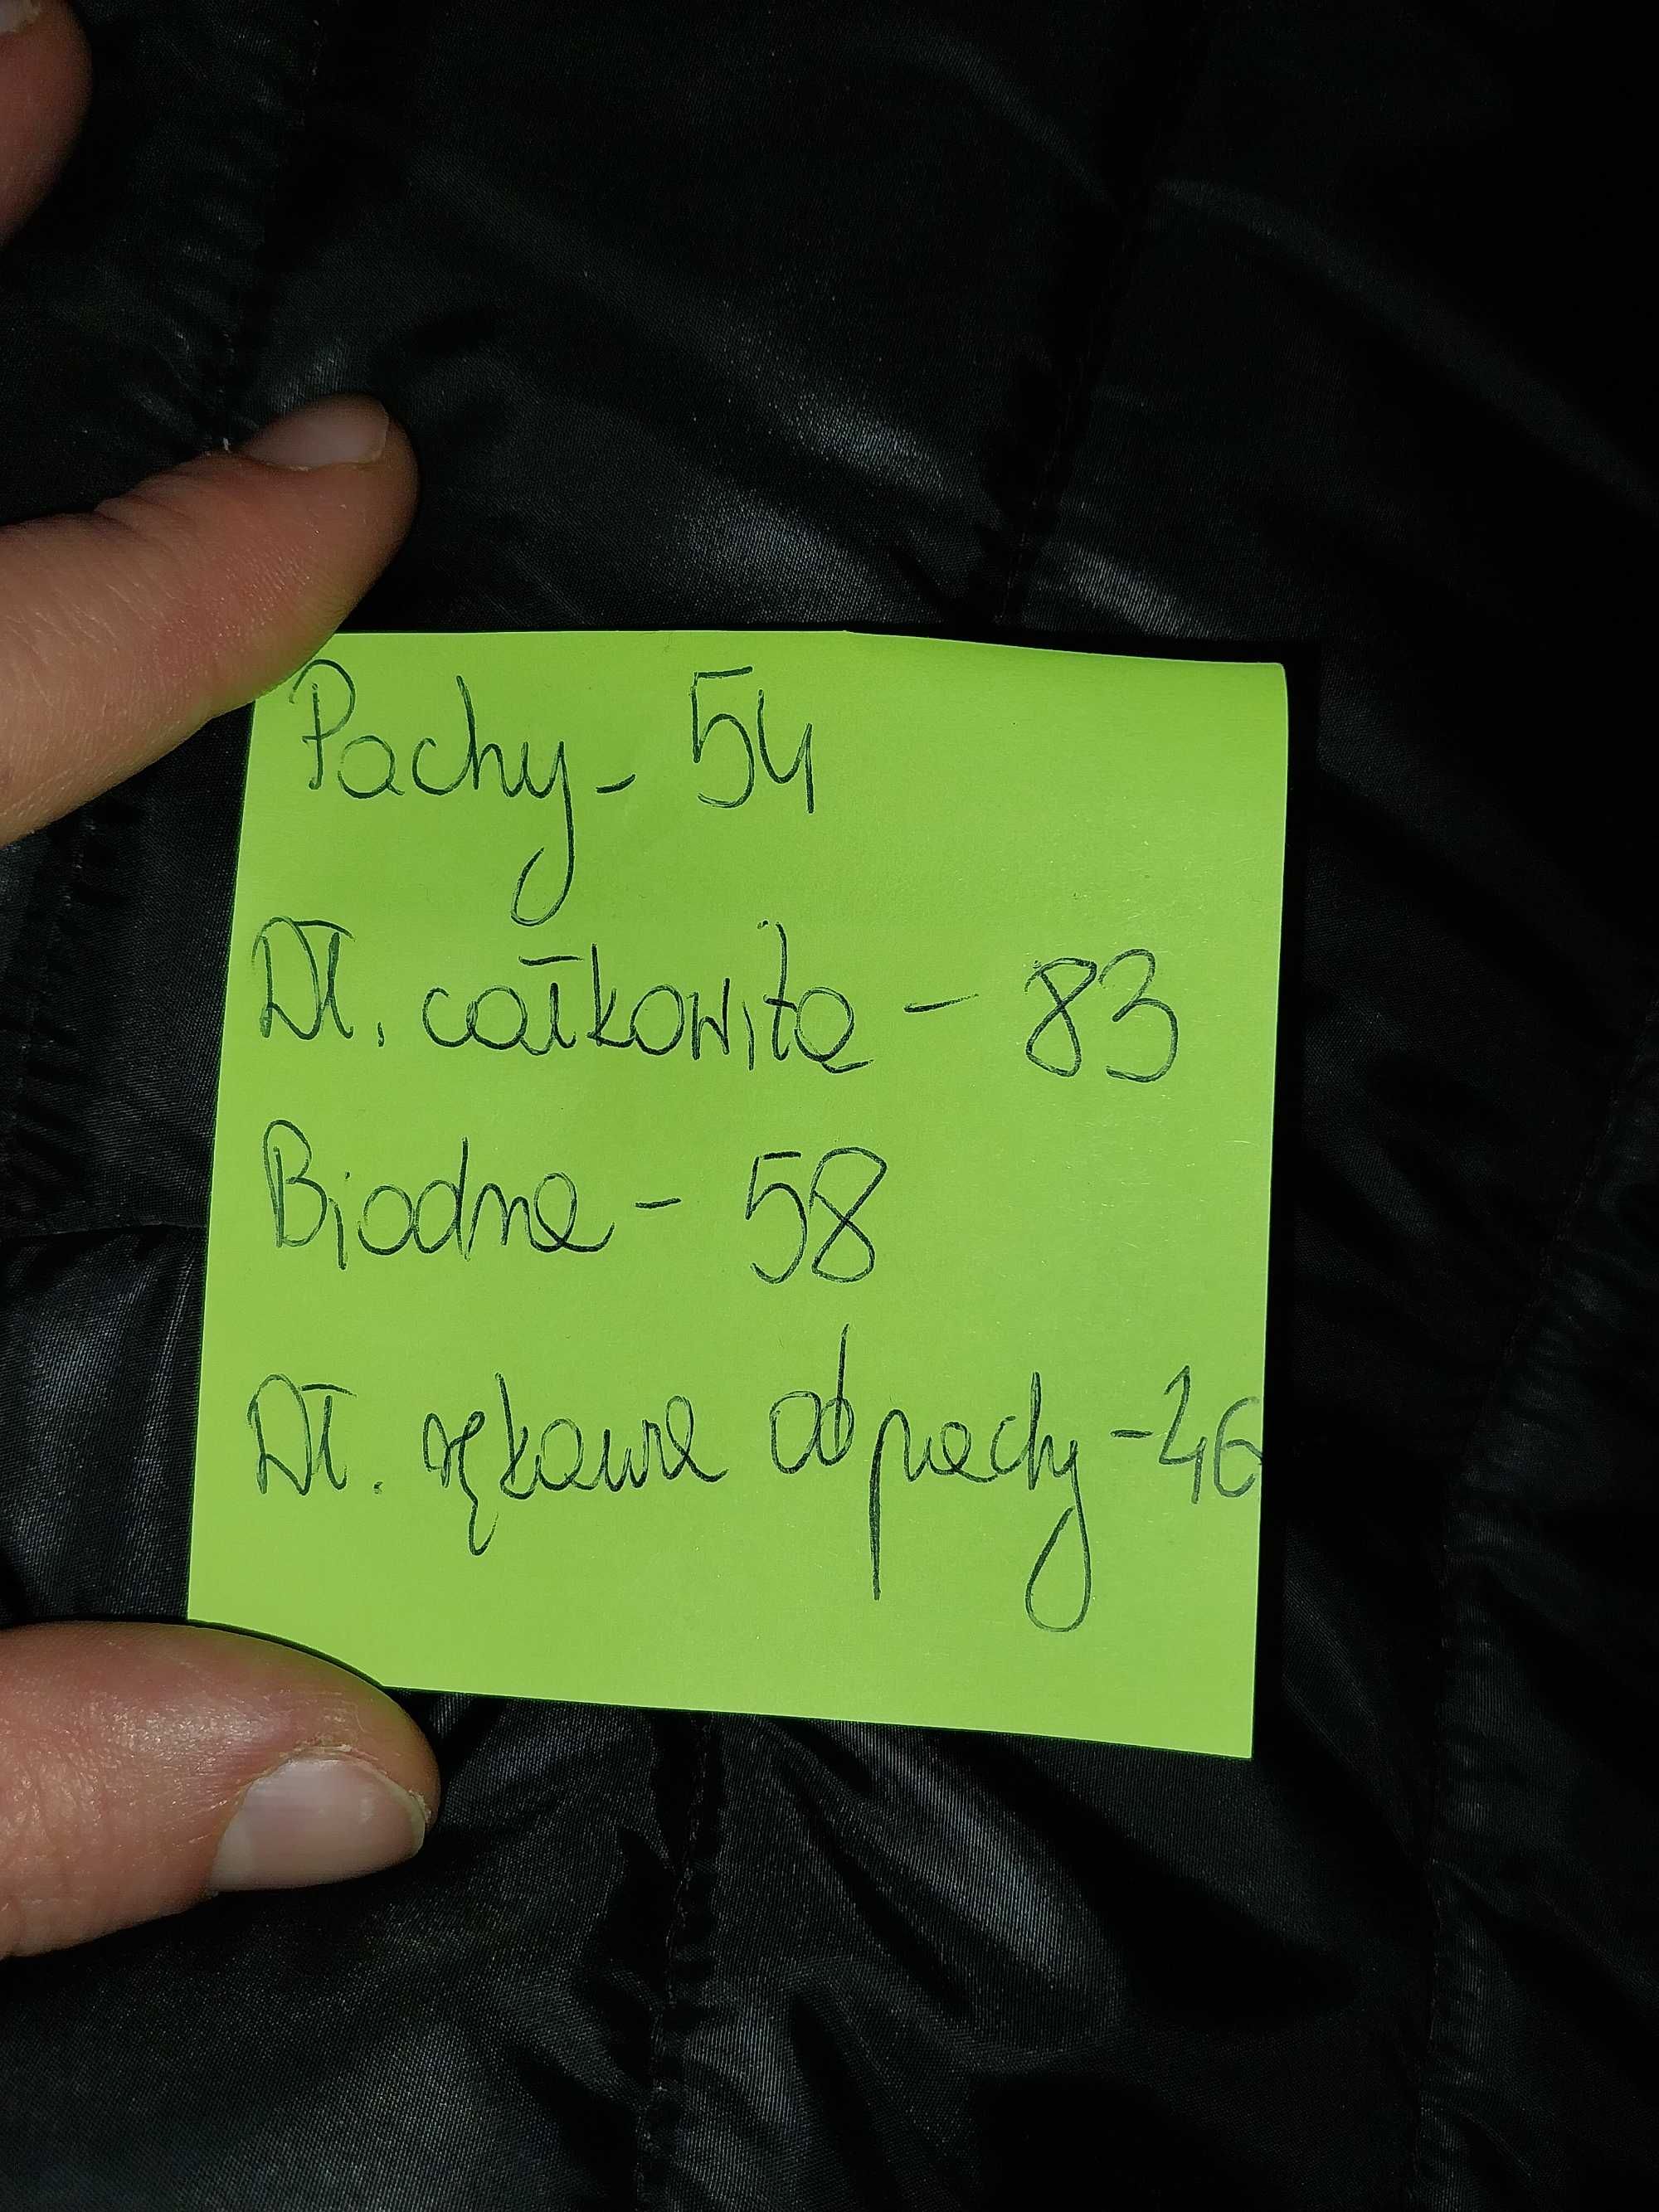 Pachy - 54
Dł. całkowita - 83
Biodra - 58
Dł. rękawa od pachy - 46